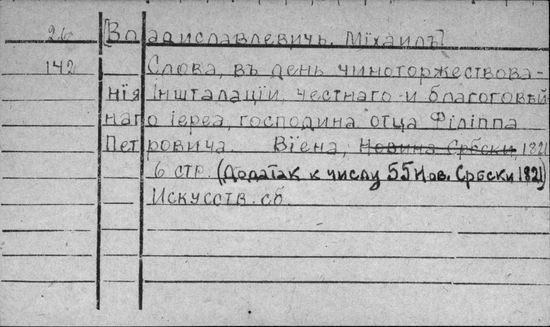 26 [Владиславлевичь, Міхаилъ]
142 Слова, въ день чиноторжествова-
нія Іншталаціи, честнаго и благоговѣй
наго іереа, господина отца Філіппа
Петровича. Віена, Новина Србски, 1821
6 стр. (Додатак к числу 55 Нов. Србски 1821)
Искусств. сб.